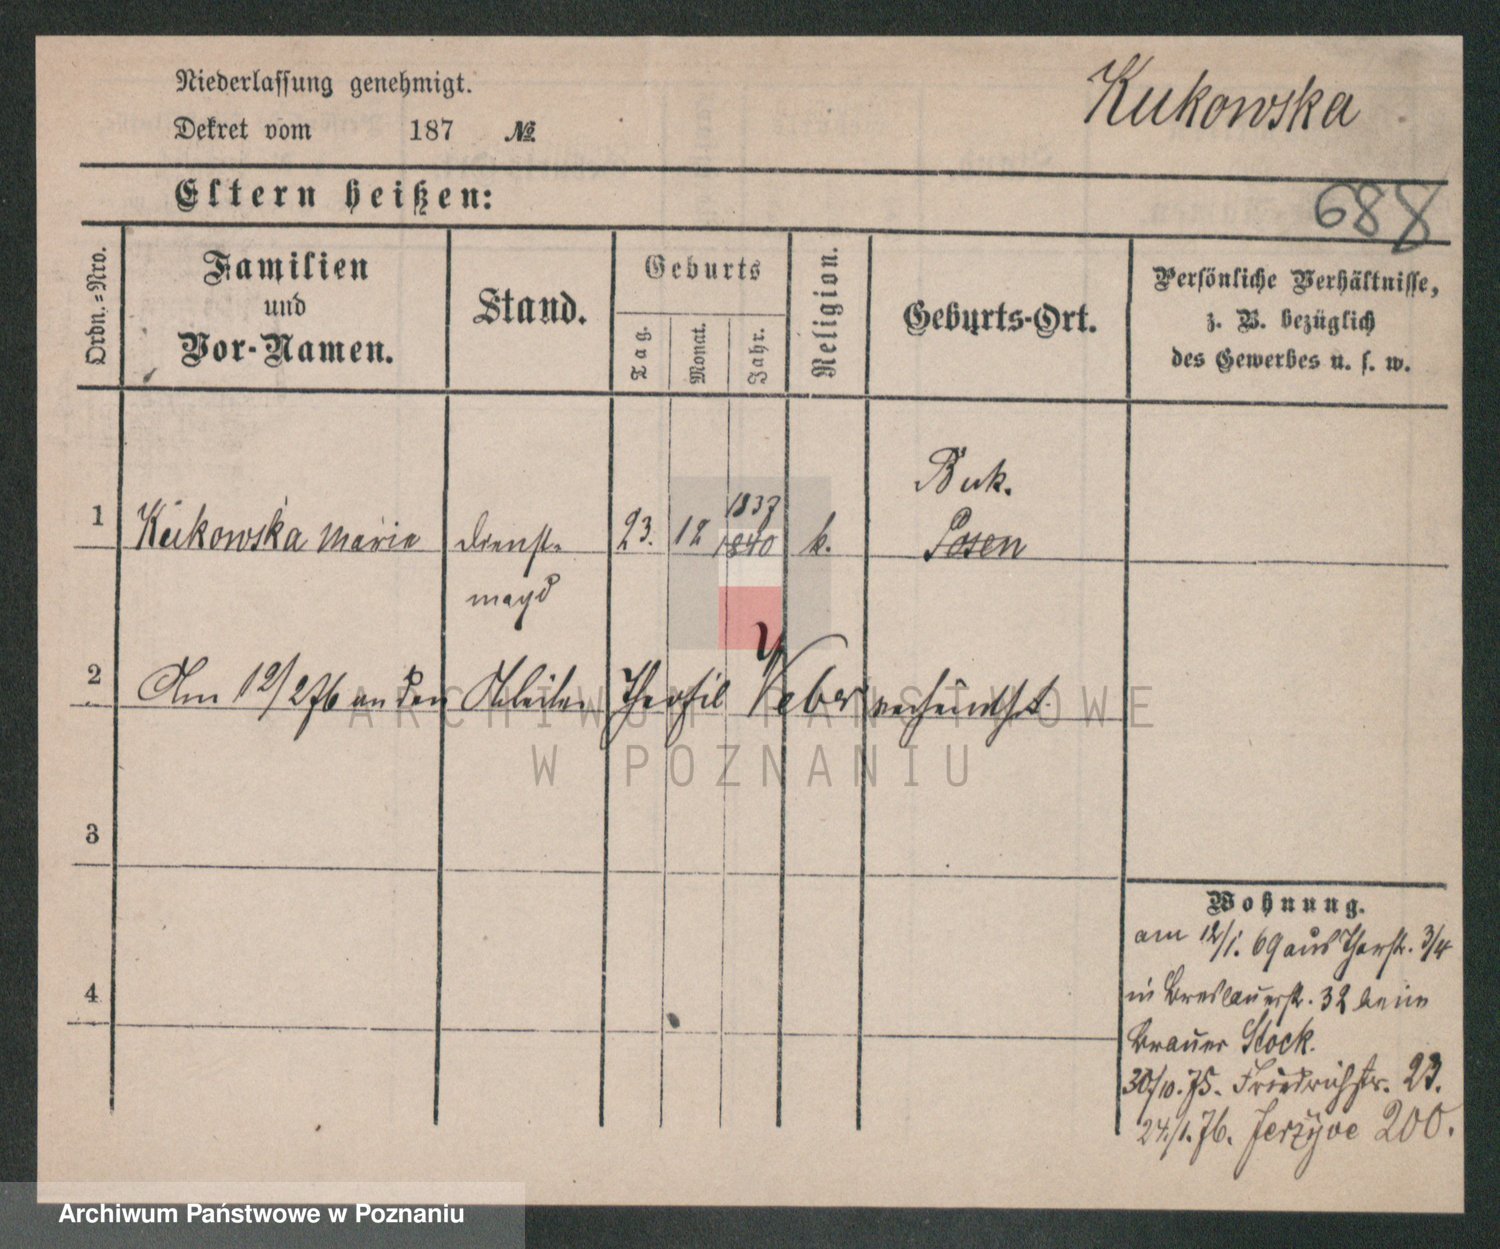 Niederlassung genehmigt.
Kukowska
Dekret vom 187 №
688
Eltern heißen:
Ordn.=Nro.
Familien
und
Vor-Namen.
Stand.
Geburts
Tag.
Monat.
Jahr.
Religion.
Geburts-Ort.
Persönliche Verhältnisse,
z. B. bezüglich
des Gewerbes u. s. w.
1
Kukowska Marie
Dienst-
magd
23.
12
1837
1840
k.
Buk.
Posen
2
Am 12/2 76 an den Arbeiter Theofil Weber verheirathet.
ARCHIWUM PAŃSTWOWE
W POZNANIU
3
4
Wohnung.
am 12/1. 69 aus Thorstr. 3/4
in Breslauerstr. 32 beim
Brauer Stock.
30/10. 75. Friedrichstr. 23.
24/1. 76. Jerzyce 200.
Archiwum Państwowe w Poznaniu